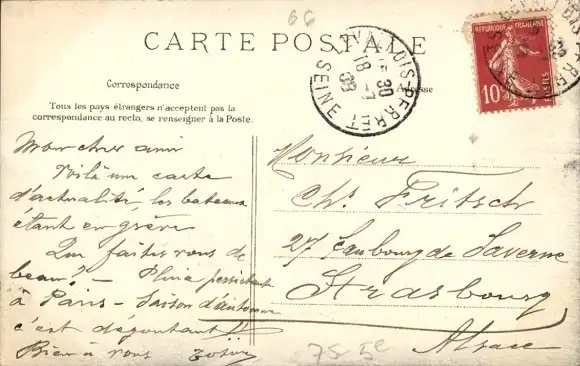 66
CARTE POSTALE
Correspondance
Adresse
Tous les pays étrangers n'acceptent pas la
correspondance au recto, se renseigner à la Poste.
LEVALLOIS-PERRET
18 -7
SEINE
REPUBLIQUE FRANÇAISE
10
Mon cher ami
Voilà une carte
d'actualité, les bateaux
étant en grève
Que faites vous de
beau? - Pluie persistante
à Paris - Saison d'automne
c'est dégoutant!!
Bien à vous
Monsieur
Ch. Fritsch
27 Faubourg de Saverne
Strasbourg
Alsace